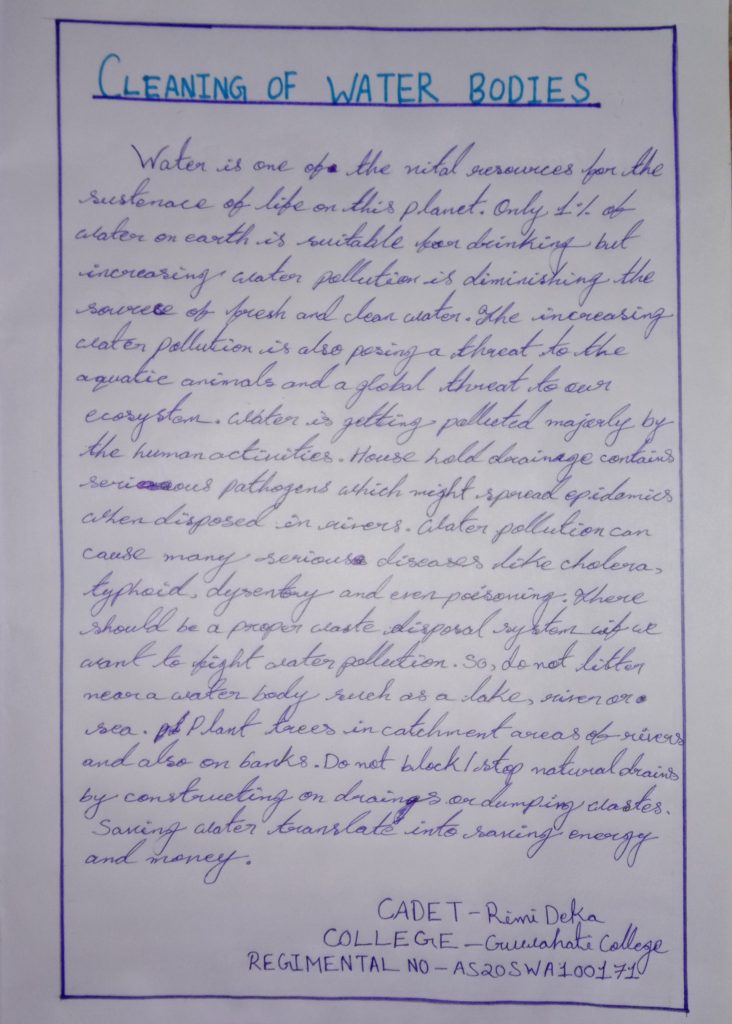 CLEANING OF WATER BODIES
Water is one of the vital resources for the
sustenace of life on this planet. Only 1% of
water on earth is suitable for drinking but
increasing water pollution is diminishing the
source of fresh and clean water. The increasing
water pollution is also posing a threat to the
aquatic animals and a global threat to our
ecosystem. Water is getting polluted majorly by
the human activities. House hold drainage contains
serious pathogens which might spread epidemics
when disposed in rivers. Water pollution can
cause many serious diseases like cholera,
typhoid, dysentry and even poisoning. There
should be a proper waste disposal system if we
want to fight water pollution. So, do not litter
near a water body such as a lake, river or
sea. Plant trees in catchment areas of rivers
and also on banks. Do not block/stop natural drains
by constructing on drains or dumping wastes.
Saving water translate into saving energy
and money.
CADET - Rimi Deka
COLLEGE - Guwahati College
REGIMENTAL NO - AS20SWA100171